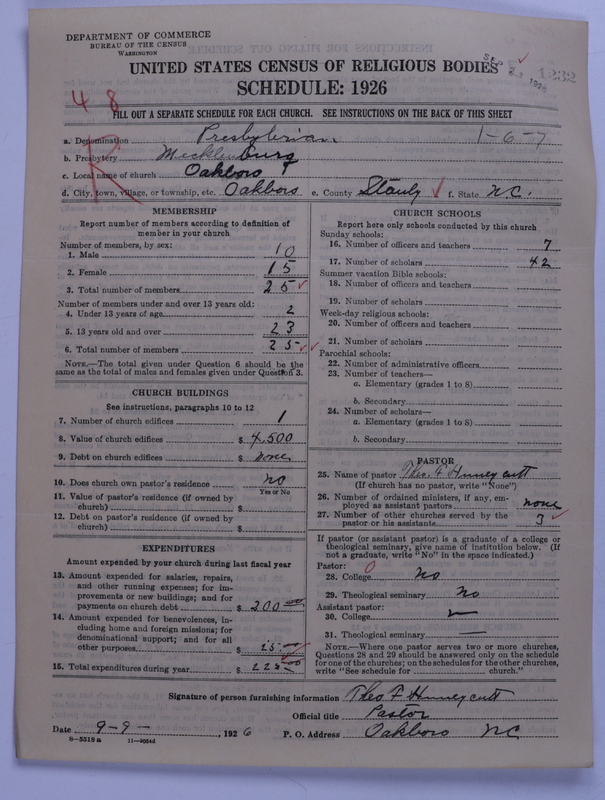 DEPARTMENT OF COMMERCE
BUREAU OF THE CENSUS
WASHINGTON
1232
UNITED STATES CENSUS OF RELIGIOUS BODIES
SCHEDULE: 1926
48
FILL OUT A SEPARATE SCHEDULE FOR EACH CHURCH. SEE INSTRUCTIONS ON THE BACK OF THIS SHEET
R
a. Denomination Presbyterian 1-6-7
b. Presbytery Mecklenburg
c. Local name of church Oakboro
d. City, town, village, or township, etc. Oakboro e. County Stanly f. State N.C.
MEMBERSHIP
Report number of members according to definition of
member in your church
Number of members, by sex:
1. Male 10
2. Female 15
3. Total number of members 25
Number of members under and over 13 years old:
4. Under 13 years of age 2
5. 13 years old and over 23
6. Total number of members 25
NOTE.—The total given under Question 6 should be the
same as the total of males and females given under Question 3.
CHURCH BUILDINGS
See instructions, paragraphs 10 to 12
7. Number of church edifices 1
8. Value of church edifices $ 4,500
9. Debt on church edifices $ None
10. Does church own pastor's residence No
Yes or No
11. Value of pastor's residence (if owned by
church) $
12. Debt on pastor's residence (if owned by
church) $
EXPENDITURES
Amount expended by your church during last fiscal year
13. Amount expended for salaries, repairs,
and other running expenses; for im-
provements or new buildings; and for
payments on church debt $ 200
14. Amount expended for benevolences, in-
cluding home and foreign missions; for
denominational support; and for all
other purposes $ 25
15. Total expenditures during year $ 225
CHURCH SCHOOLS
Report here only schools conducted by this church
Sunday schools:
16. Number of officers and teachers 7
17. Number of scholars 42
Summer vacation Bible schools:
18. Number of officers and teachers
19. Number of scholars
Week-day religious schools:
20. Number of officers and teachers
21. Number of scholars
Parochial schools:
22. Number of administrative officers
23. Number of teachers—
a. Elementary (grades 1 to 8)
b. Secondary
24. Number of scholars—
a. Elementary (grades 1 to 8)
b. Secondary
PASTOR
25. Name of pastor Theo. F. Hunneycutt
(If church has no pastor, write "None")
26. Number of ordained ministers, if any, em-
ployed as assistant pastors none
27. Number of other churches served by the
pastor or his assistants 3
If pastor (or assistant pastor) is a graduate of a college or
theological seminary, give name of institution below. (If
not a graduate, write "No" in the space indicated.)
Pastor: 0
28. College No
29. Theological seminary No
Assistant pastor:
30. College —
31. Theological seminary —
NOTE.—Where one pastor serves two or more churches,
Questions 28 and 29 should be answered only on the schedule
for one of the churches; on the schedules for the other churches,
write "See schedule for church."
Signature of person furnishing information Theo F Hunneycutt
Official title Pastor
Date 9-9-, 1926 P. O. Address Oakboro NC
8—5518a 11—9054d